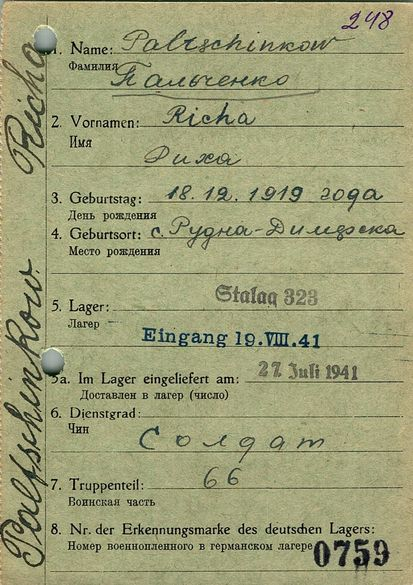 248
1. Name: Paltschinkow
Фамилия
Пальченко
2. Vornamen: Richa
Имя
Риха
3. Geburtstag: 18.12.1919 года
День рождения
4. Geburtsort: с. Рудна-Димерска
Место рождения
5. Lager: Stalag 323
Лагер
Eingang 19.VIII.41
5a. Im Lager eingeliefert am: 27. Juli 1941
Доставлен в лагер (число)
6. Dienstgrad:
Чин
Солдат
7. Truppenteil: 66
Воинская часть
8. Nr. der Erkennungsmarke des deutschen Lagers:
Номер военнопленного в германском лагере 0759
Paltschinkow Richa